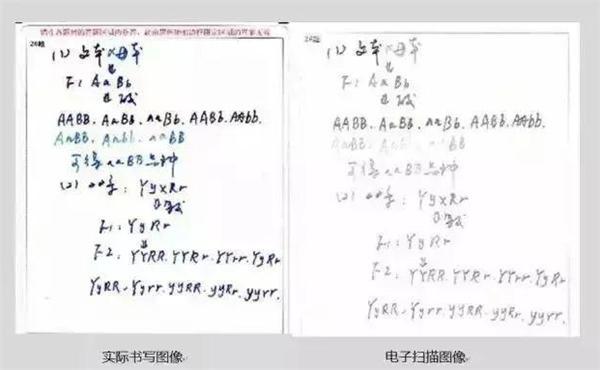 请在各题目的答题区域内作答，超出黑色矩形边框限定区域的答案无效
24题
(1) 父本 × 母本
↓
F1 AaBb
↓
AABB. AaBB. aaBb. AABb. AAbb.
AaBB. Aabb. aaBB
可得aaBB品种
(2)
: YyxRr
F1: YyRr
↓
F2. YYRR. YYRr. YYrr. YyRr
YyRR. Yyrr. yyRR. yyRr. yyrr.
实际书写图像
24题
(1) 父本 × 母本
↓
F1 AaBb
↓
AABB. AaBB. aaBb. AABb. AAbb.
aaBB品种
(2)
: YyxRr
F1: YyRr
↓
F2. YYRR. YYRr. YYrr. YyRr
YyRR. Yyrr. yyRR. yyRr. yyrr.
电子扫描图像